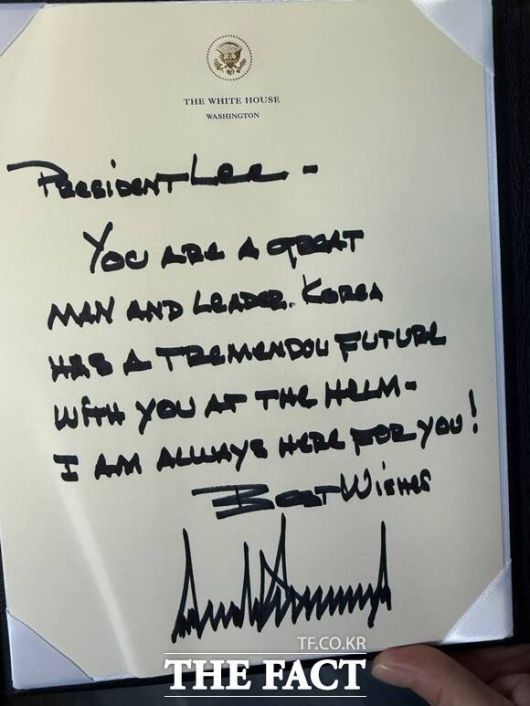 THE WHITE HOUSE
WASHINGTON
PRESIDENT LEE -
YOU ARE A GREAT
MAN AND LEADER. KOREA
HAS A TREMENDOU FUTURE
WITH YOU AT THE HELM-
I AM ALWAYS HERE FOR YOU!
BEST WISHES
TF.CO.KR
THE FACT